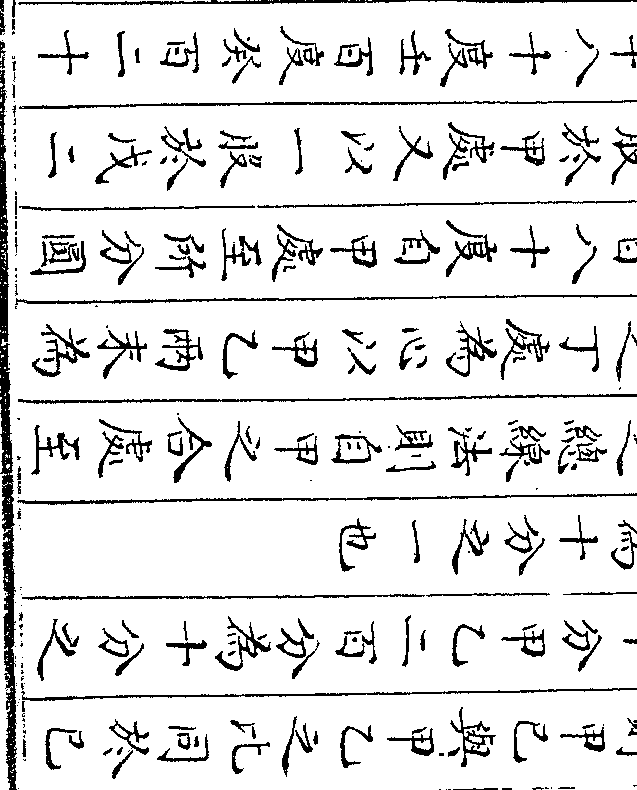 甲己與甲乙之比同於己
分甲乙二百分為十分之
十分之一也
總線法則自甲之合處至
丁處為心以甲乙兩末為
八十度自甲處至所分圓
股於甲處又以一股於戊二
十八十度壬百度癸百二十